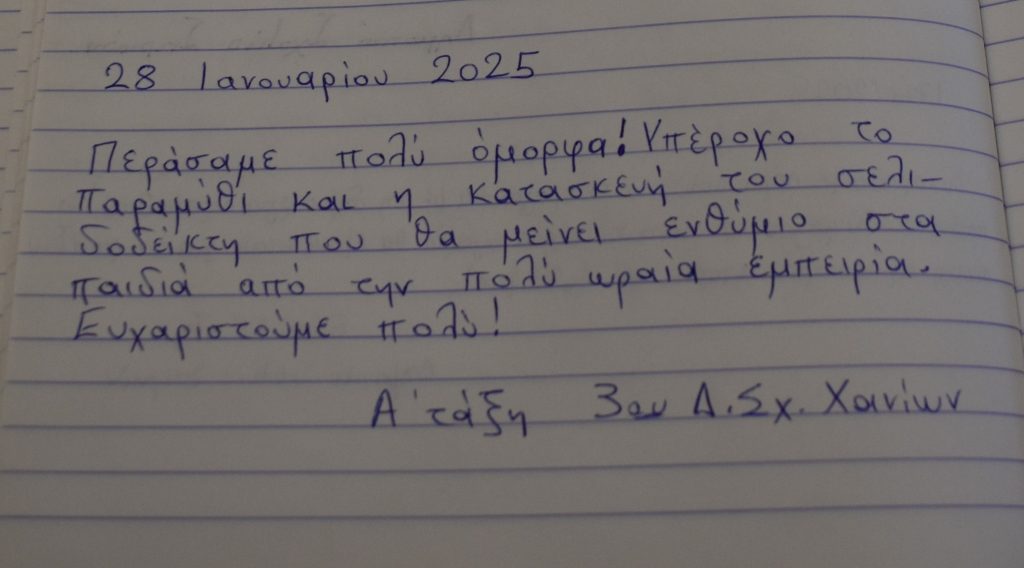 28 Ιανουαρίου 2025
Περάσαμε πολύ όμορφα! Υπέροχο το
παραμύθι και η κατασκευή του σελι-
δοδείκτη που θα μείνει ενθύμιο στα
παιδιά από την πολύ ωραία εμπειρία.
Ευχαριστούμε πολύ!
Α΄ τάξη 3ου Δ.Σχ. Χανίων